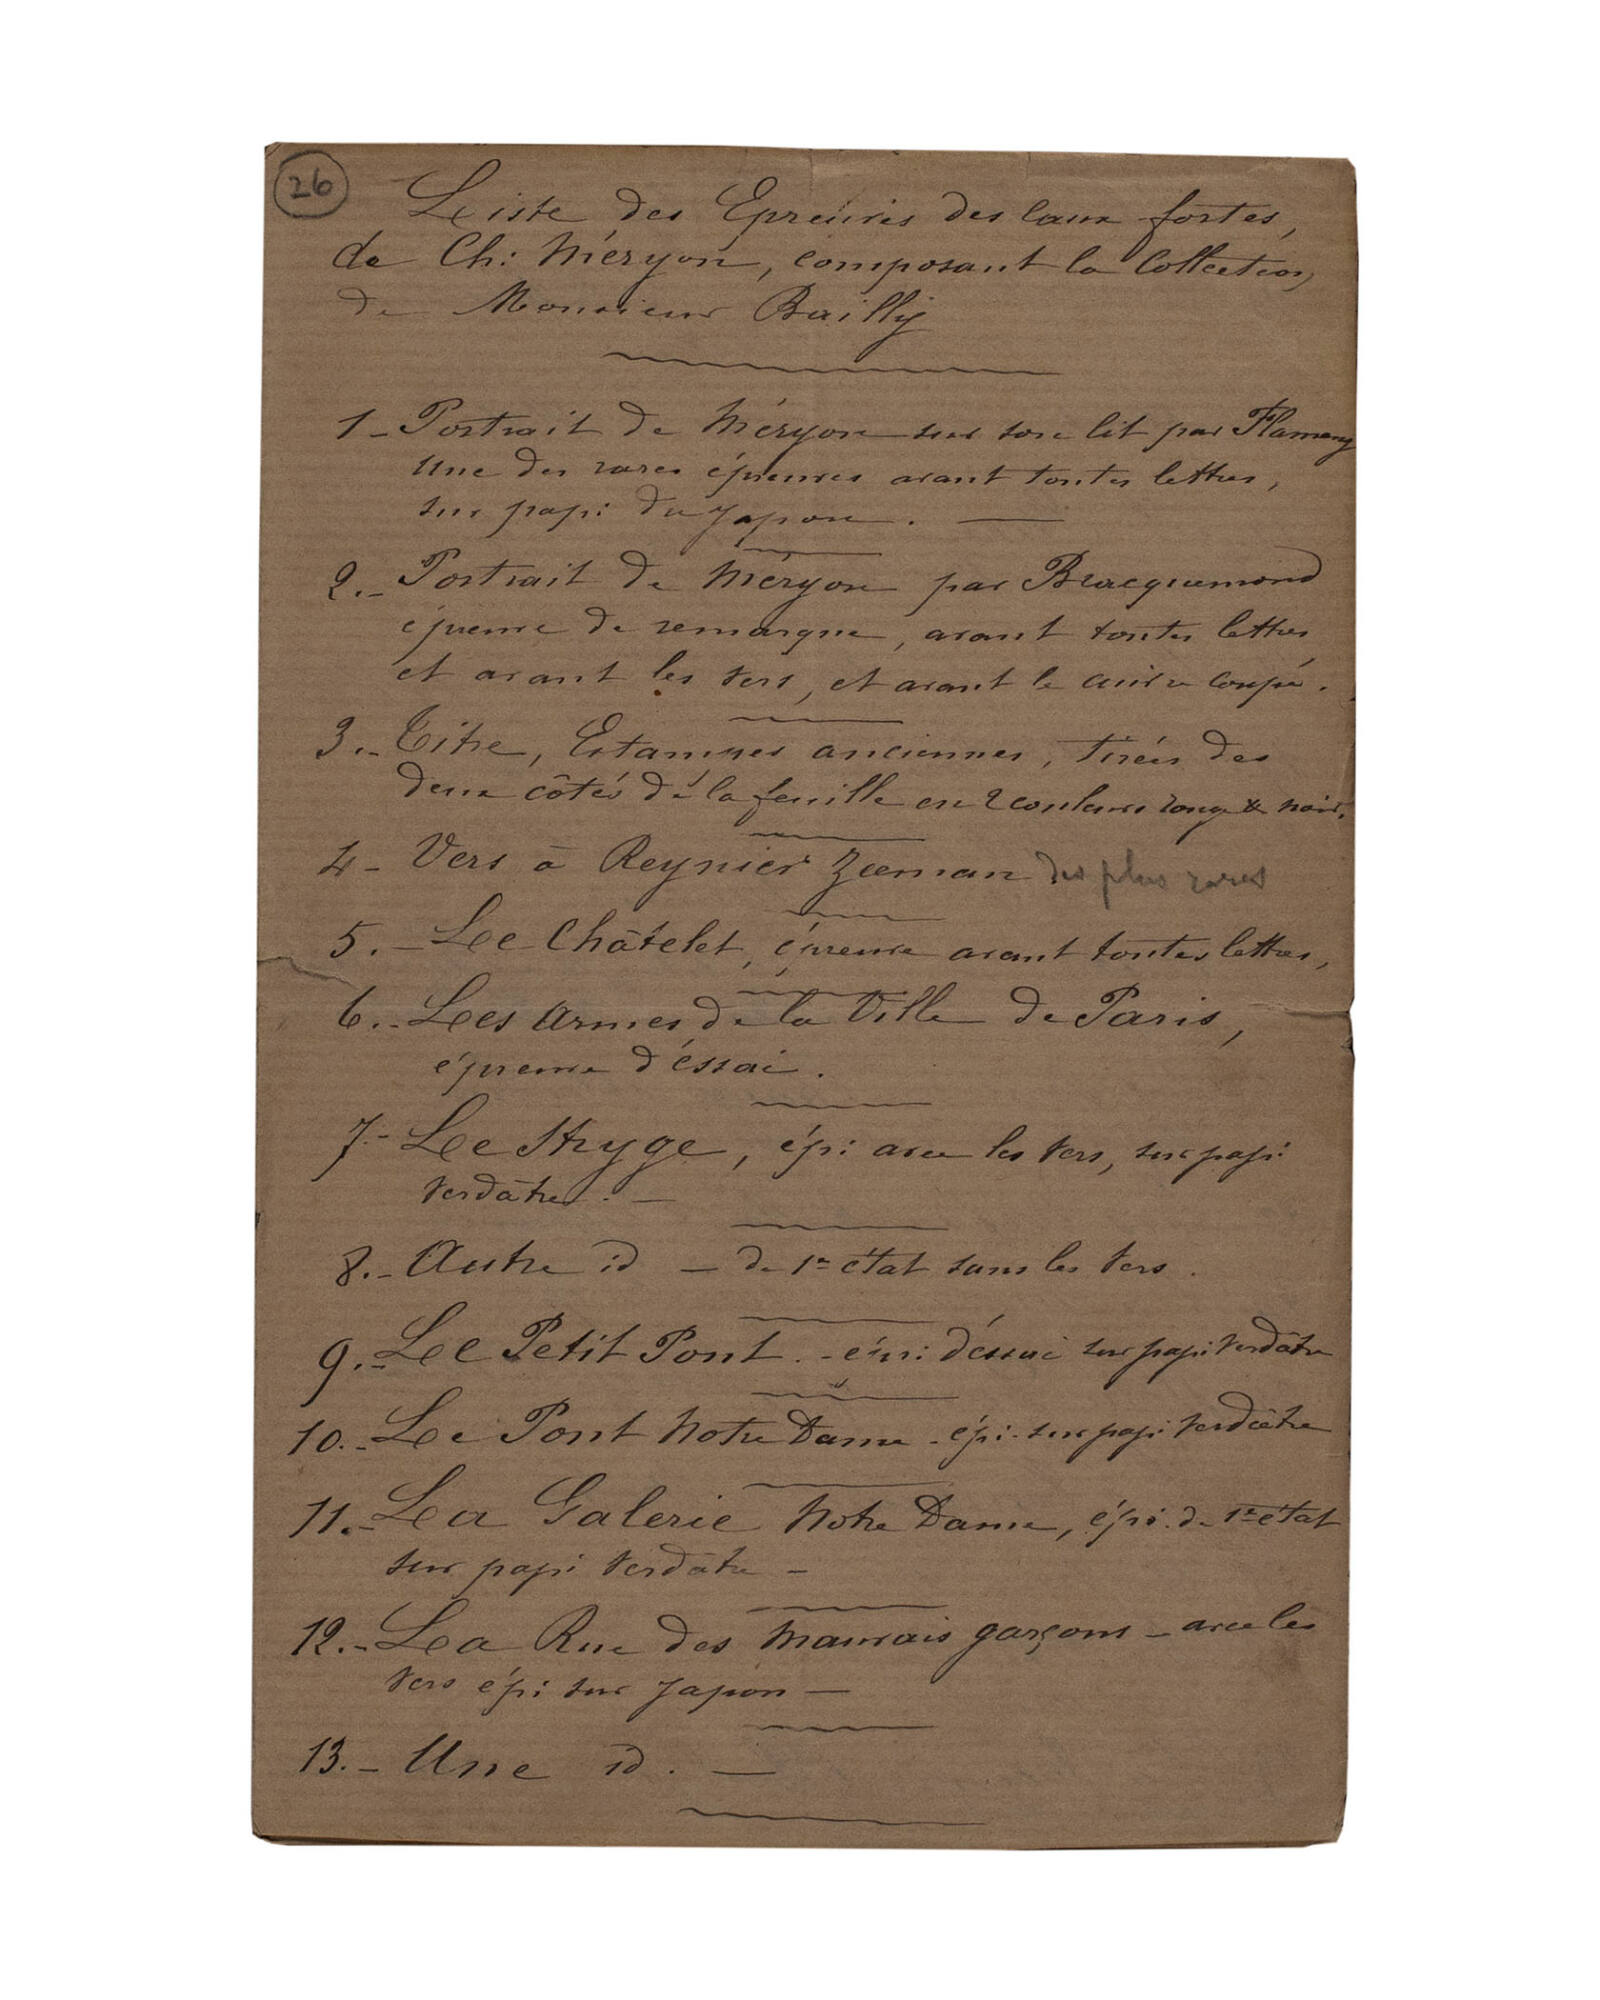 26
Liste des Epreuves des eaux fortes,
de Ch: Méryon, composant la Collection,
de Monsieur Bailly
1 - Portrait de Méryon sur son lit par Flameng
Une des rares épreuves avant toutes lettres,
sur papi: du Japon. —
2.- Portrait de Méryon par Bracquemond
épreuve de remarque, avant toutes lettres
et avant les vers, et avant le cuivre coupé.
3.- Titre, Estampes anciennes, tirées des
deux côtés dé la feuille en 2 couleurs rouge & noir.
4 - Vers à Reynier Zeeman des plus rares
5. - Le Châtelet, épreuve avant toutes lettres,
6.- Les Armes de la Ville de Paris,
épreuve d'éssai.
7.- Le Stryge, épr: avec les vers, sur papi:
verdâtre. —
8.- Autre id — de 1er état sans les vers.
9.- Le Petit Pont. - épr: d'éssai sur papi: verdâtre
10.- Le Pont Notre Dame - épr: sur papi: verdâtre
11.- La Galerie Notre Dame, épr: de 1er état
sur papi: verdâtre —
12.- La Rue des Mauvais garçons — avec les
vers épr: sur Japon —
13. - Une id. —